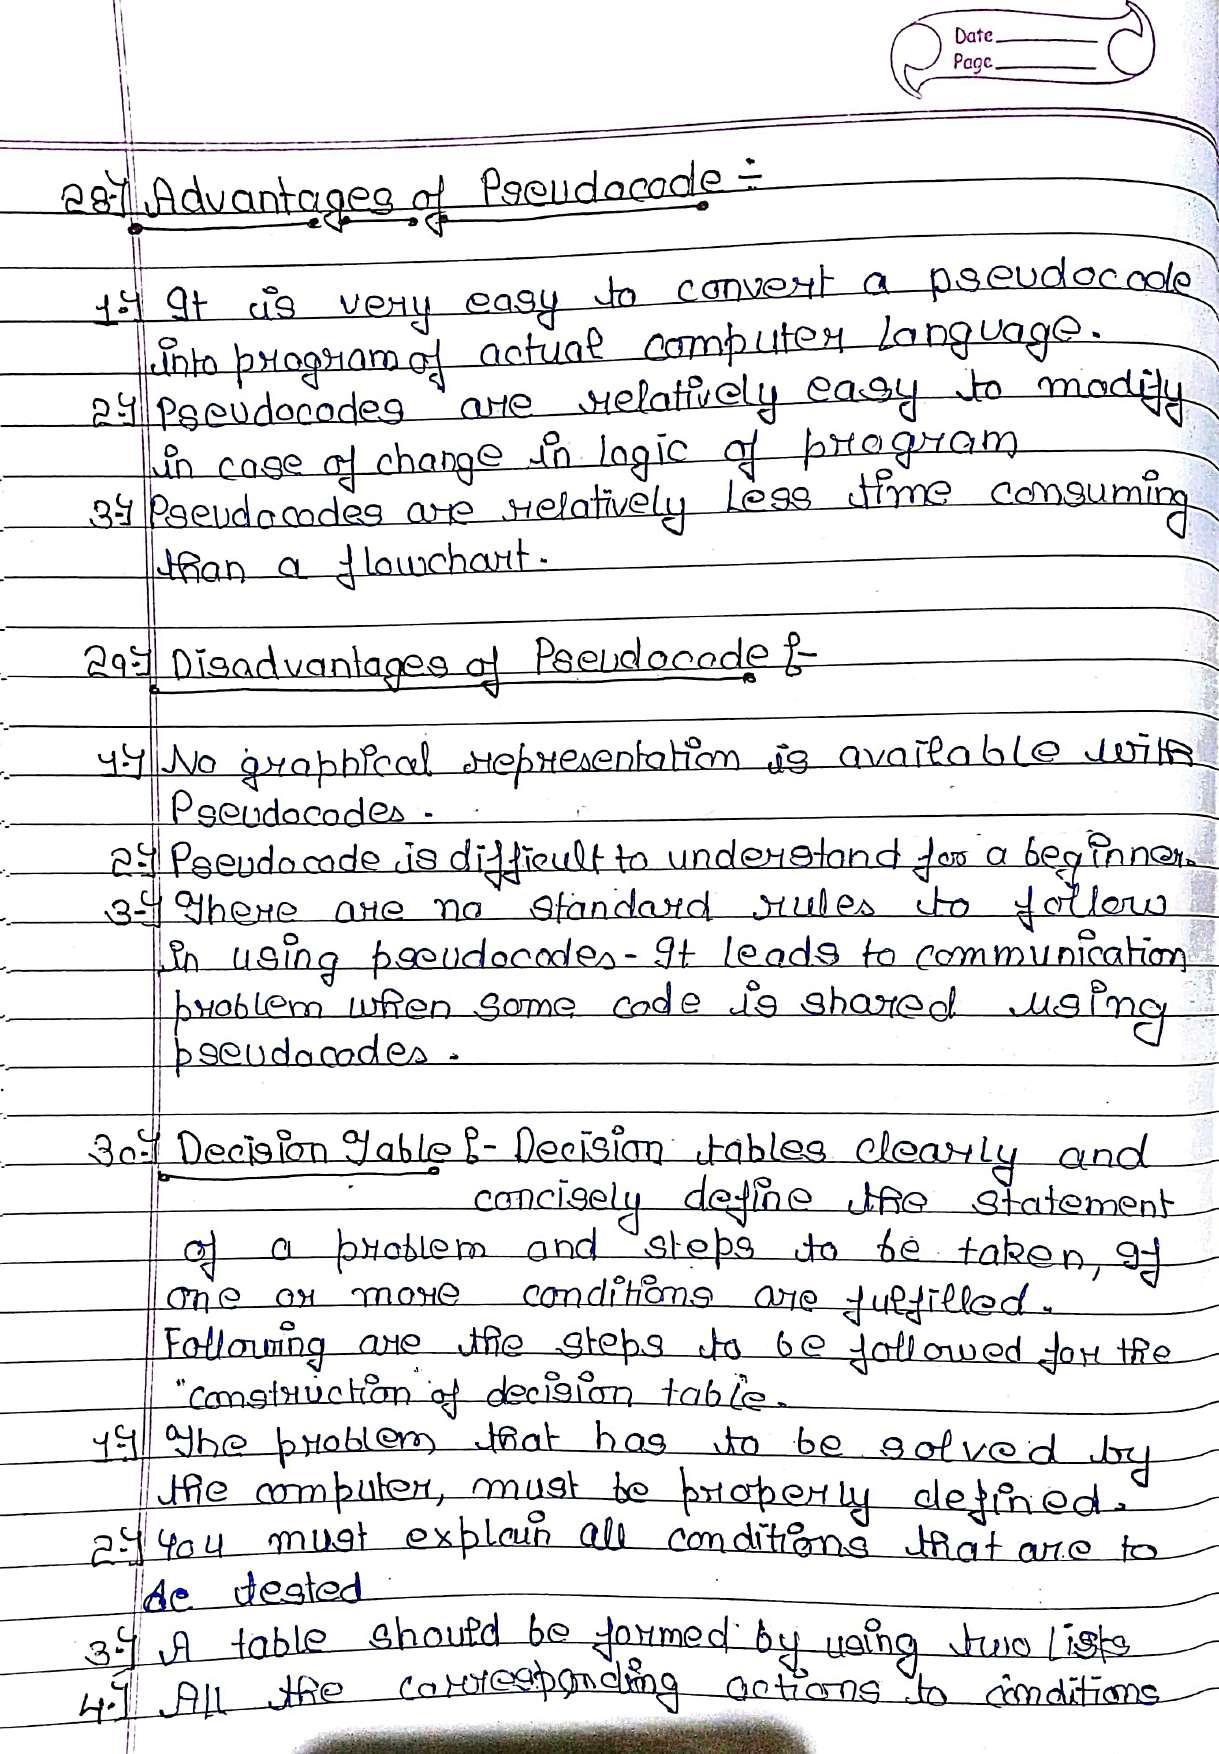 Date
Page
28) Advantages of Pseudocode :-
1) It is very easy to convert a pseudocode
into program of actual computer language.
2) Pseudocodes are relatively easy to modify
in case of change in logic of program
3) Pseudocodes are relatively less time consuming
than a flowchart.
29) Disadvantages of Pseudocode :-
1) No graphical representation is available with
Pseudocodes.
2) Pseudocode is difficult to understand for a beginner.
3) There are no standard rules to follow
in using pseudocodes - It leads to communication
problem when some code is shared using
pseudocodes.
30) Decision Table :- Decision tables clearly and
concisely define the statement
of a problem and steps to be taken, If
one or more conditions are fulfilled.
Following are the steps to be followed for the
"construction" of decision table.
1) The problem that has to be solved by
the computer, must be properly defined.
2) You must explain all conditions that are to
be tested
3) A table should be formed by using two lists
4) All the corresponding actions to conditions